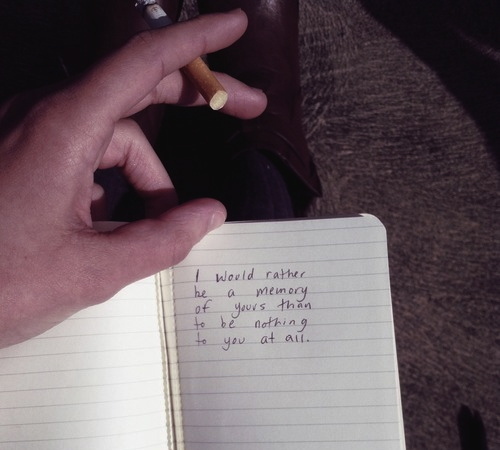 I would rather
be a memory
of yours than
to be nothing
to you at all.